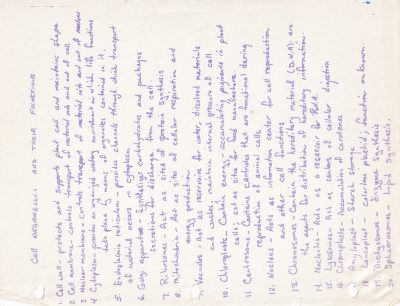 Cell Organelles and their Functions
1. Cell wall - protects and supports plant cell and maintains shape
2. Cell membrane - controls transport of material into and out of cell
3. Nuclear membrane - controls transport of material into and out of nucleus
4. Cytoplasm - provides an organized watery environment in which life functions
take place by means of organelles contained in it.
5. Endoplasmic reticulum - provides channels through which transport
of material occurs in cytoplasm
6. Golgi apparatus - synthesizes carbohydrates and packages
secretions for discharge from the cell
7. Ribosomes - Act as sites of protein synthesis
8. Mitochondria - Act as sites of cellular respiration and
energy production
9. Vacuoles - Act as reservoirs for water, dissolved materials
and wastes; maintain internal pressure of cell
10. Chloroplasts - Contain energy accumulating pigments in plant
cells; act as sites for food manufacture.
11. Centrosome - Contains centrioles that are functional during
reproduction of animal cells.
12. Nucleus - Acts as information center for cell reproduction
and other cell functions
13. Chromosomes - Contain the hereditary material (D.N.A) are
the agents for distribution of hereditary information
14. Nucleolus - Act as a reservoir for R.N.A.
15. Lysosomes - Act as centers of cellular digestion
16. Chromoplasts - Accumulation of carotenes
17. Amyloplast - Starch storage
18. Leucoplast - Colorless plastid, function unknown.
19. Dictyosome - Enzyme Synthesis
20. Spherosomes - Lipid Synthesis.